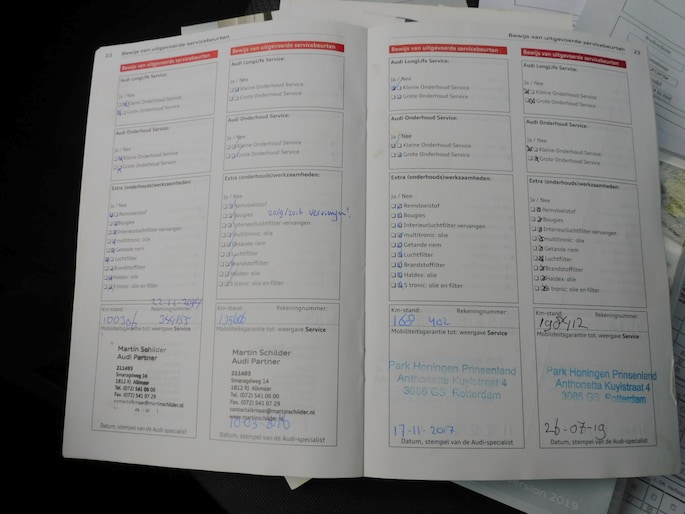 22
Bewijs van uitgevoerde servicebeurten
Bewijs van uitgevoerde servicebeurten
Audi LongLife Service:
Ja / Nee
Kleine Onderhoud Service
Grote Onderhoud Service
Audi Onderhoud Service:
Ja / Nee
Kleine Onderhoud Service
Grote Onderhoud Service
Extra (onderhouds)werkzaamheden:
Ja / Nee
Remvloeistof
Bougies
Interieurluchtfilter vervangen
multitronic: olie
Getande riem
Luchtfilter
Brandstoffilter
Haldex: olie
S tronic: olie en filter
22-11-2014
Km-stand: Rekeningnummer:
Mobiliteitsgarantie tot: weergave Service
Martin Schilder
Audi Partner
211493
Smaragdweg 14
1812 RJ Alkmaar
Tel. (072) 541 06 00
Fax. (072) 541 07 29
contactalkmaar@martinschilder.nl
Datum, stempel van de Audi-specialist
Bewijs van uitgevoerde servicebeurten
Audi LongLife Service:
Ja / Nee
Kleine Onderhoud Service
Grote Onderhoud Service
Audi Onderhoud Service:
Ja / Nee
Kleine Onderhoud Service
Grote Onderhoud Service
Extra (onderhouds)werkzaamheden:
Ja / Nee
Remvloeistof
Bougies 20/9/2016 vervangen!
Interieurluchtfilter vervangen
multitronic: olie
Getande riem
Luchtfilter
Brandstoffilter
Haldex: olie
S tronic: olie en filter
Km-stand: Rekeningnummer:
Mobiliteitsgarantie tot: weergave Service
Martin Schilder
Audi Partner
211493
Smaragdweg 14
1812 RJ Alkmaar
Tel. (072) 541 06 00
Fax. (072) 541 07 29
contactalkmaar@martinschilder.nl
www.martinschilder.nl
Datum, stempel van de Audi-specialist
Bewijs van uitgevoerde servicebeurten
23
Bewijs van uitgevoerde servicebeurten
Audi LongLife Service:
Ja / Nee
Kleine Onderhoud Service
Grote Onderhoud Service
Audi Onderhoud Service:
Ja / Nee
Kleine Onderhoud Service
Grote Onderhoud Service
Extra (onderhouds)werkzaamheden:
Ja / Nee
Remvloeistof
Bougies
Interieurluchtfilter vervangen
multitronic: olie
Getande riem
Luchtfilter
Brandstoffilter
Haldex: olie
S tronic: olie en filter
Km-stand: Rekeningnummer:
168 402
Mobiliteitsgarantie tot: weergave Service
Park Honingen Prinsenland
Anthonetta Kuylstraat 4
3066 GS Rotterdam
17-11-2017
Datum, stempel van de Audi-specialist
Bewijs van uitgevoerde servicebeurten
Audi LongLife Service:
Ja / Nee
Kleine Onderhoud Service
Grote Onderhoud Service
Audi Onderhoud Service:
Ja / Nee
Kleine Onderhoud Service
Grote Onderhoud Service
Extra (onderhouds)werkzaamheden:
Ja / Nee
Remvloeistof
Bougies
Interieurluchtfilter vervangen
multitronic: olie
Getande riem
Luchtfilter
Brandstoffilter
Haldex: olie
S tronic: olie en filter
Km-stand: Rekeningnummer:
198412
Mobiliteitsgarantie tot: weergave Service
Park Honingen Prinsenland
Anthonetta Kuylstraat 4
3066 GS Rotterdam
26-07-19
Datum, stempel van de Audi-specialist
2019